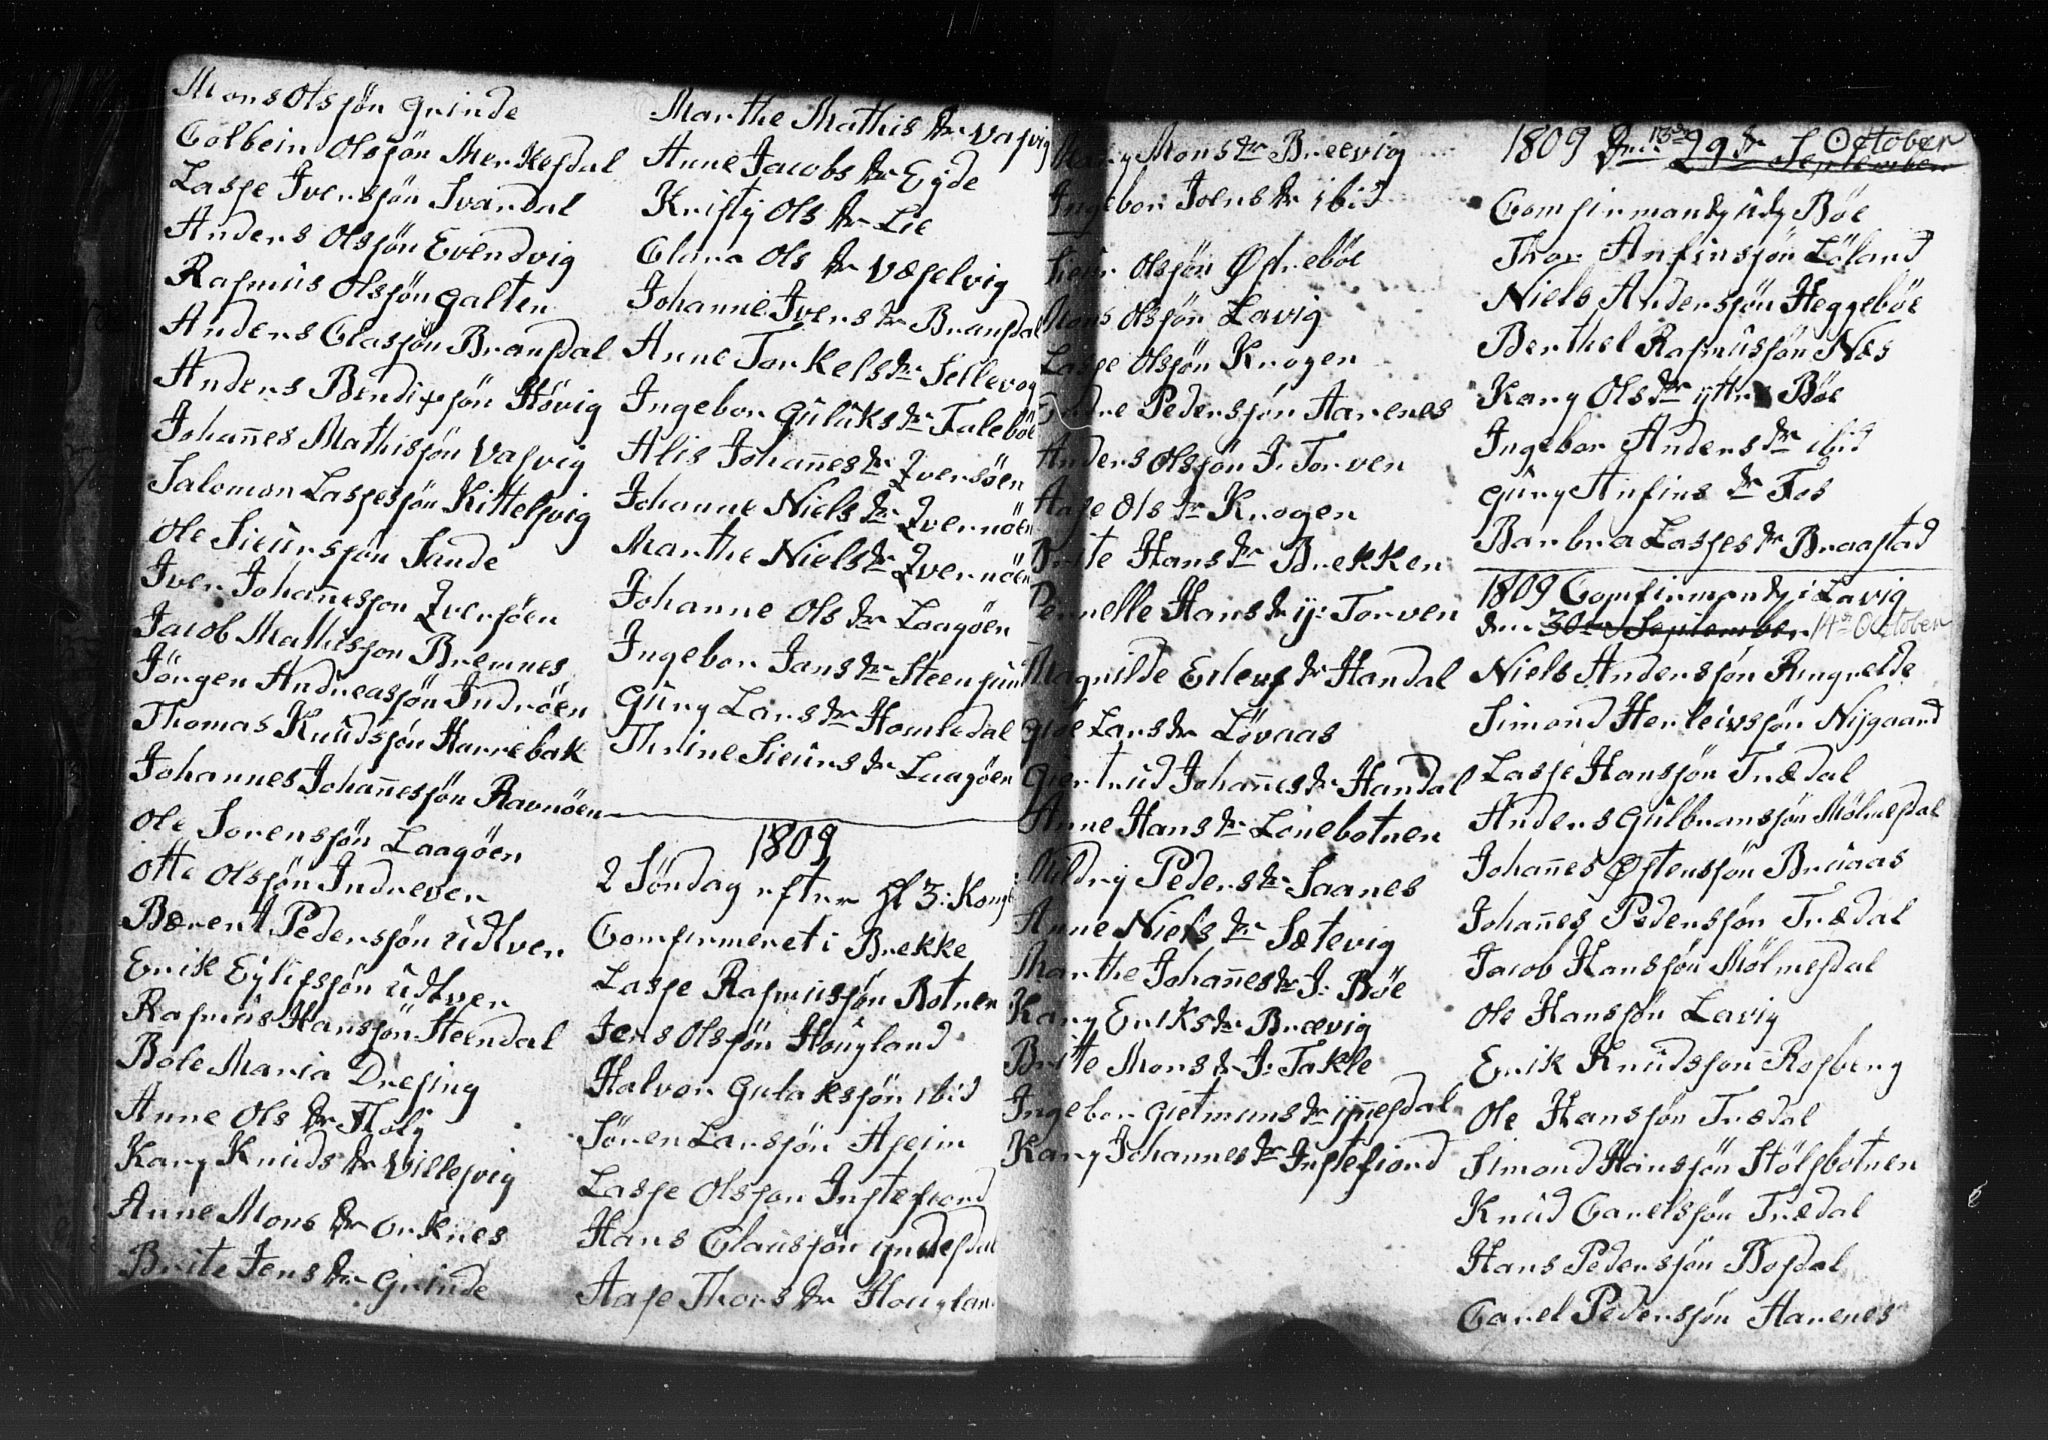 Mons Olssjøn Grinde
Colbein Olssjøn Merkesdal
Lasse Iverssjøn Svardal
Anders Olssjøn Evendvig
Rasmus Olssjøn Galten
Anders Classjøn Bransdal
Anders Bendixsjøn Høvig
Johañes Mathissjøn Vasvig
Salomon Lassesjøn Kittelsvig
Ole Siurssjøn Sande
Iver Johañessjøn Qversøen
Jacob Mathissjøn Bremnes
Jørgen Andreassjøn Indrøen
Thomas Knudssjøn Harrebak
Johannes Johañessjøn Ravnøen
Ole Sørenssjøn Laagøen
Otte Olssjøn Indrever
Bærent Pederssjøn Udtver
Erik Eylifssjøn Udtver
Rasmus Hanssjøn Steendal
Bole Maria Dresing
Anne Ols dr
Kary Knuds dr Villesvig
Anne Mons dr Orknes
Brite Jens dr Grinde
Marthe Mathis dr Vasvig
Anne Jacobs dr Eyde
Kristy Ols dr Lie
Clara Ols dr Væselvig
Johanne Ivers dr Bransdal
Anne Torkels dr Sellevog
Ingebor Gulaks dr Falebøe
Alis Johañes dr Qversøen
Johanne Niels dr Qvernøen
Marthe Niels dr Qvernøen
Johanne Ols dr Laagøen
Ingebor Jans dr Steensund
Gury Lars dr Homledal
Thrine Siurs dr Laagøen
1809
2 Søndag efter Hl 3: Kong
Comfirmeret i Brekke
Lasse Rasmussjøn Botnen
Jens Olssjøn Hougland
Halvor Gulakssjøn ibid
Søren Larssjøn Aseim
Lasse Olssjøn Instefiord
Hans Claussjøn yndesdal
Aase Thors dr Hougland
Mons dr Breevig
Ingebor Ivers dr ibid
Siur Olssjøn Østrebøe
Mons Olssjøn Lavig
Lasse Olssjøn Krogen
Endre Pederssjøn Aarenes
Anders Olssjøn I. Torven
Aase Ols dr Krogen
Brite Hans dr Brekken
Pernelle Hans dr y: Torven
Magnilde Erlens dr Handal
Lars dr Løvaas
Giertrud Johañes dr Handal
Anne Hans dr Lonebotnen
Peders dr Saanes
Anne Niels dr Sætevig
Marthe Johañes dr I: Bøe
Kary Eriks dr Brævig
Britte Mons dr I: Takle
Ingebor Gietmuns dr yñesdal
Kary Johannes dr Instefiord
1809 den 13de 29de September October
Comfirmandz udj Bøe
Thor Anfinssjøn Løland
Niels Anderssjøn Heggebøe
Berthel Rasmussjøn Næs
Kary Ols dr yttre Bøe
Ingebor Anders dr ibid
Gury Anfins dr Fos
Barbra Lasses dr Braastad
1809 Comfirmandz i Lavig
den 30te September 14de October
Niels Anderssjøn Ringreide
Simond Herleivssjøn Nygaard
Lasse Hanssjøn Trædal
Anders Gulbranssjøn Mølmesdal
Johañes Østenssjøn Bruaas
Johañes Pederssjøn Trædal
Jacob Hanssjøn Mølmesdal
Ole Hanssjøn Lavig
Erik Knudssjøn Rosberg
Ole Hanssjøn Trædal
Simond Hanssjøn Stølsbotnen
Knud Carelssjøn Trædal
Hans Pederssjøn Bosdal
Carel Pederssjøn Harenes